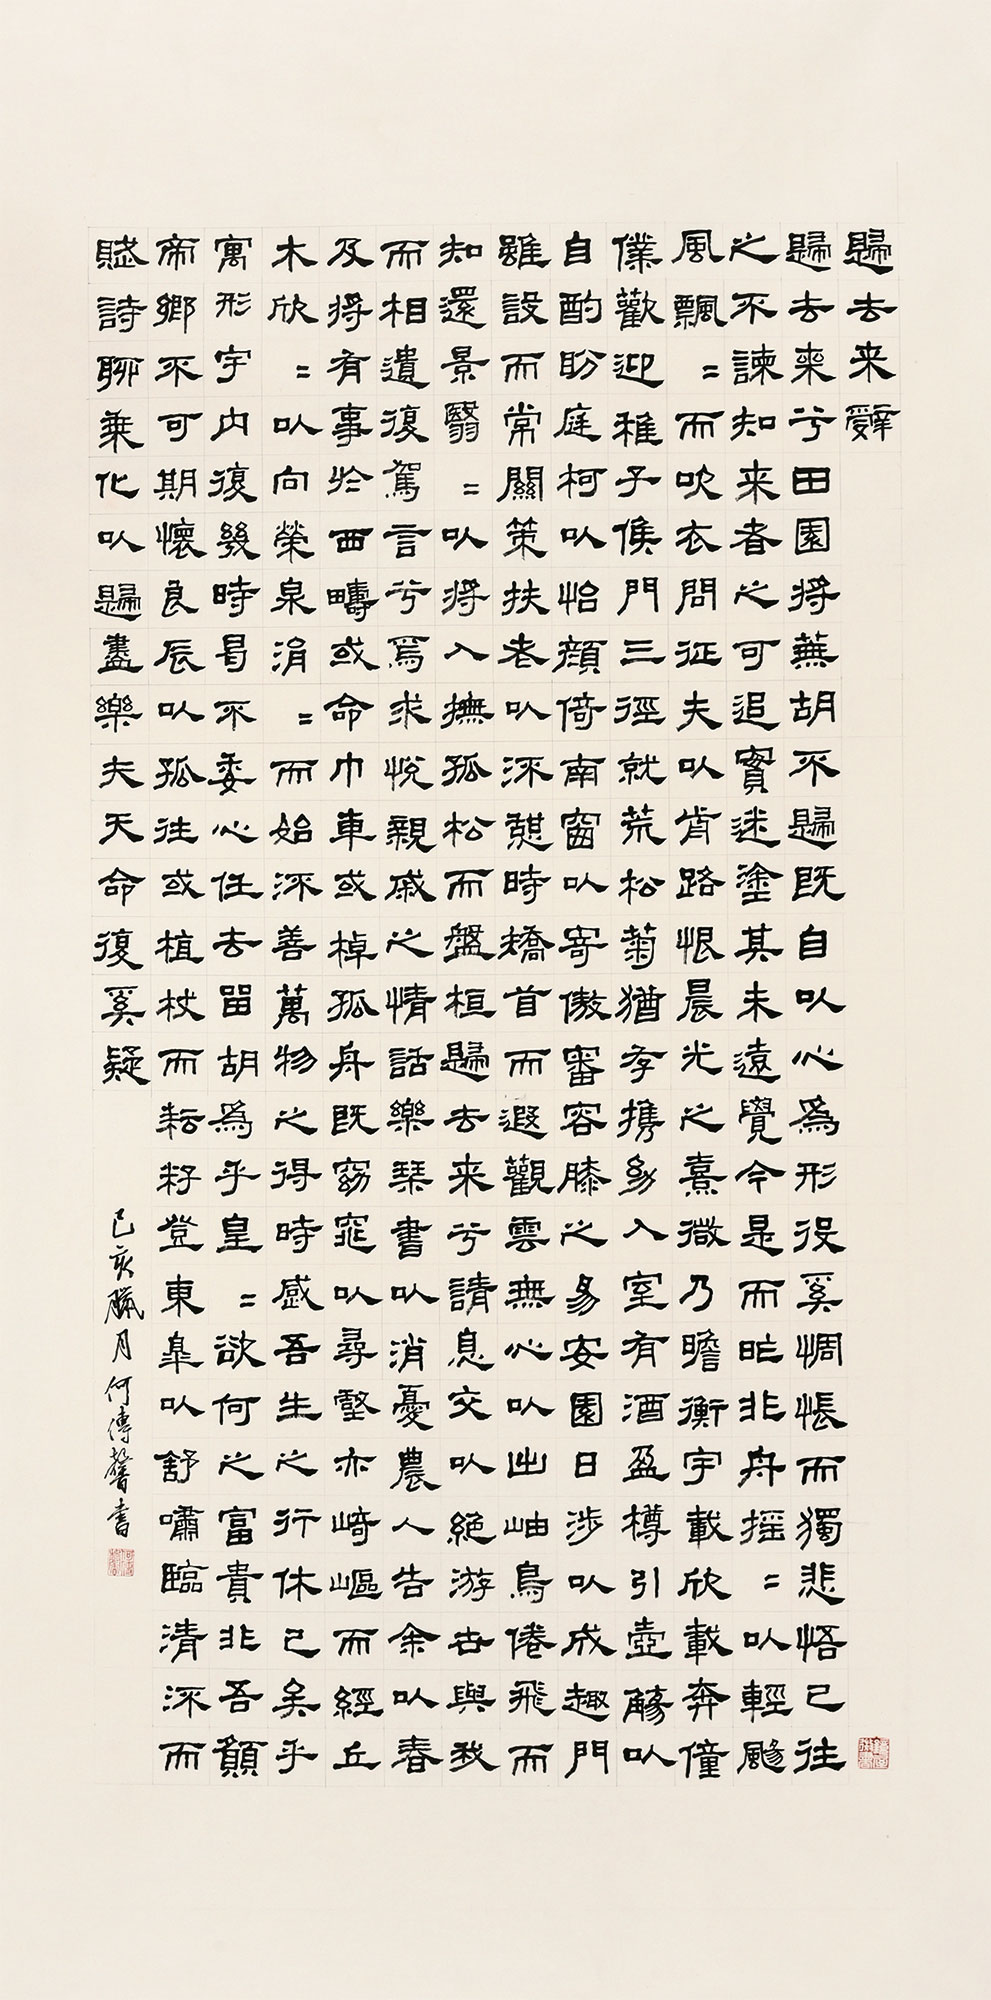 歸去来辭
歸去来兮田園將蕪胡不歸既自以心爲形役奚惆悵而獨悲悟已往
之不諫知来者之可追實迷塗其未遠覺今是而昨非舟摇〻以輕颺
風飄〻而吹衣問征夫以前路恨晨光之熹微乃瞻衡宇載欣載奔僮
僕歡迎稚子候門三徑就荒松菊猶存携幼入室有酒盈樽引壺觴以
自酌眄庭柯以怡顔倚南窗以寄傲審容膝之易安園日涉以成趣門
雖設而常關策扶老以流憩時矯首而遐觀雲無心以出岫鳥倦飛而
知還景翳〻以將入撫孤松而盤桓歸去来兮請息交以絶游世與我
而相遺復駕言兮焉求悅親戚之情話樂琴書以消憂農人告余以春
及將有事於西疇或命巾車或棹孤舟既窈窕以尋壑亦崎嶇而經丘
木欣〻以向榮泉涓〻而始流善萬物之得時感吾生之行休已矣乎
寓形宇内復幾時曷不委心任去留胡爲乎皇〻欲何之富貴非吾願
帝鄉不可期懷良辰以孤往或植杖而耘耔登東皋以舒嘯臨清流而
賦詩聊乘化以歸盡樂夫天命復奚疑
己亥臘月何傳馨書